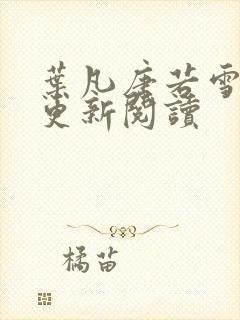 葉凡唐若雪
更新閱讀
橘苗